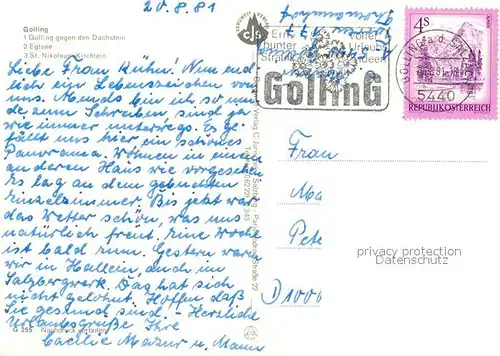 20.8.81
Golling
1 Golling gegen den Dachstein
2 Eglsee
3 St. Nikolaus-Kirchlein
Liebe Frau Kühn! Nun end
lich ein Lebenszeichen von
uns. Abends bin ich so mü
de zum Schreiben, sind ja
wie immer unterwegs. Es ge-
fällt uns hier ein schönes
Panorama. Wohnen in einem
anderen Haus wie vorgesehen
Es lag an dem gebuchten
Einzelzimmer. Bis jetzt war
das Wetter schön, was uns
natürlich freut. Eine Woche
ist bald rum. Gestern waren
wir in Hallein, auch im
Salzbergwerk. Das hat sich
nicht gelohnt. Hoffen daß
Sie gesund sind. - Herzliche
Urlaubsgrüße Ihre
Caecilie Mazur u. Mann
G 255 Nachdruck verboten
cjs
Ein
bunter
Strauß
voller
Urlaubs
ideen
GollinG
GOLLING a.d.
5440
4S
REPUBLIK ÖSTERREICH
Frau
Ma
Pete
D 1000
privacy protection
Datenschutz